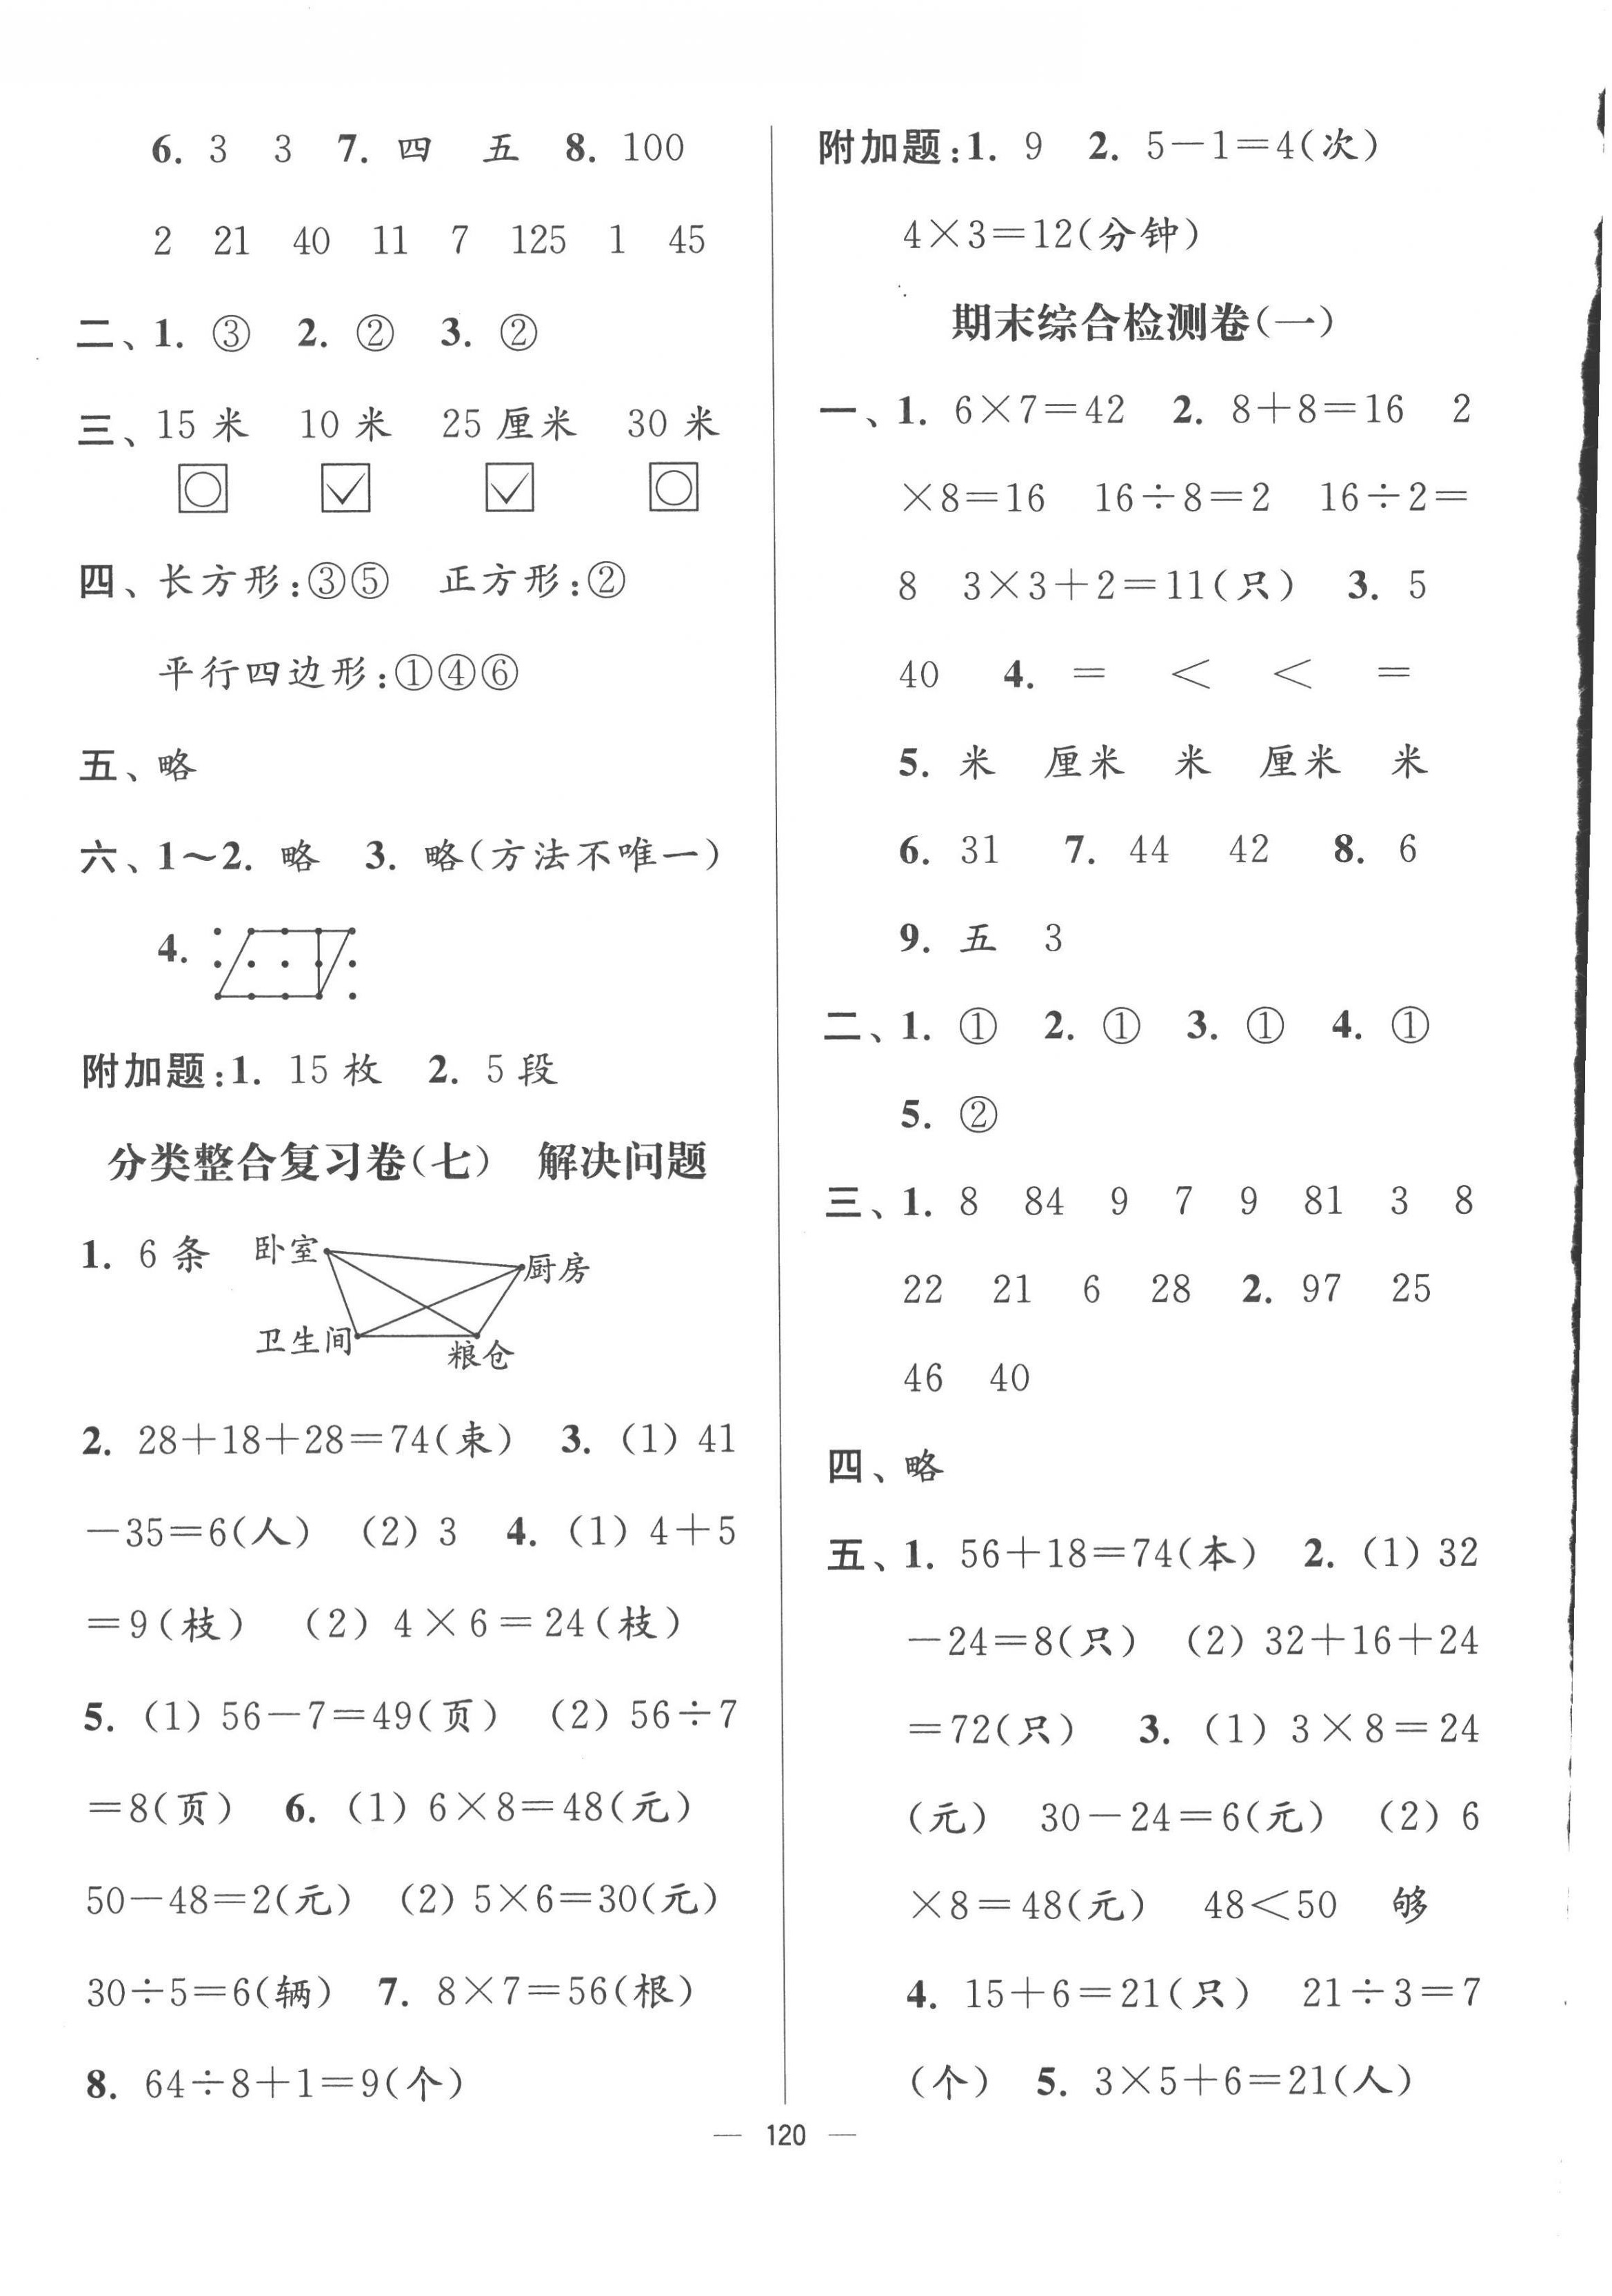 6. 3 3 7. 四 五 8. 100
2 21 40 11 7 125 1 45
二、1. ③ 2. ② 3. ②
三、15 米 10 米 25 厘米 30 米
四、长方形:③⑤ 正方形:②
平行四边形:①④⑥
五、略
六、1～2. 略 3. 略(方法不唯一)
4.
附加题:1. 15 枚 2. 5 段
分类整合复习卷(七) 解决问题
1. 6 条 卧室 厨房
卫生间 粮仓
2. 28+18+28=74(束) 3. (1) 41
-35=6(人) (2) 3 4. (1) 4+5
=9(枝) (2) 4×6=24(枝)
5. (1) 56-7=49(页) (2) 56÷7
=8(页) 6. (1) 6×8=48(元)
50-48=2(元) (2) 5×6=30(元)
30÷5=6(辆) 7. 8×7=56(根)
8. 64÷8+1=9(个)
附加题:1. 9 2. 5-1=4(次)
4×3=12(分钟)
期末综合检测卷(一)
一、1. 6×7=42 2. 8+8=16 2
×8=16 16÷8=2 16÷2=
8 3×3+2=11(只) 3. 5
40 4. = < < =
5. 米 厘米 米 厘米 米
6. 31 7. 44 42 8. 6
9. 五 3
二、1. ① 2. ① 3. ① 4. ①
5. ②
三、1. 8 84 9 7 9 81 3 8
22 21 6 28 2. 97 25
46 40
四、略
五、1. 56+18=74(本) 2. (1) 32
-24=8(只) (2) 32+16+24
=72(只) 3. (1) 3×8=24
(元) 30-24=6(元) (2) 6
×8=48(元) 48<50 够
4. 15+6=21(只) 21÷3=7
(个) 5. 3×5+6=21(人)
— 120 —